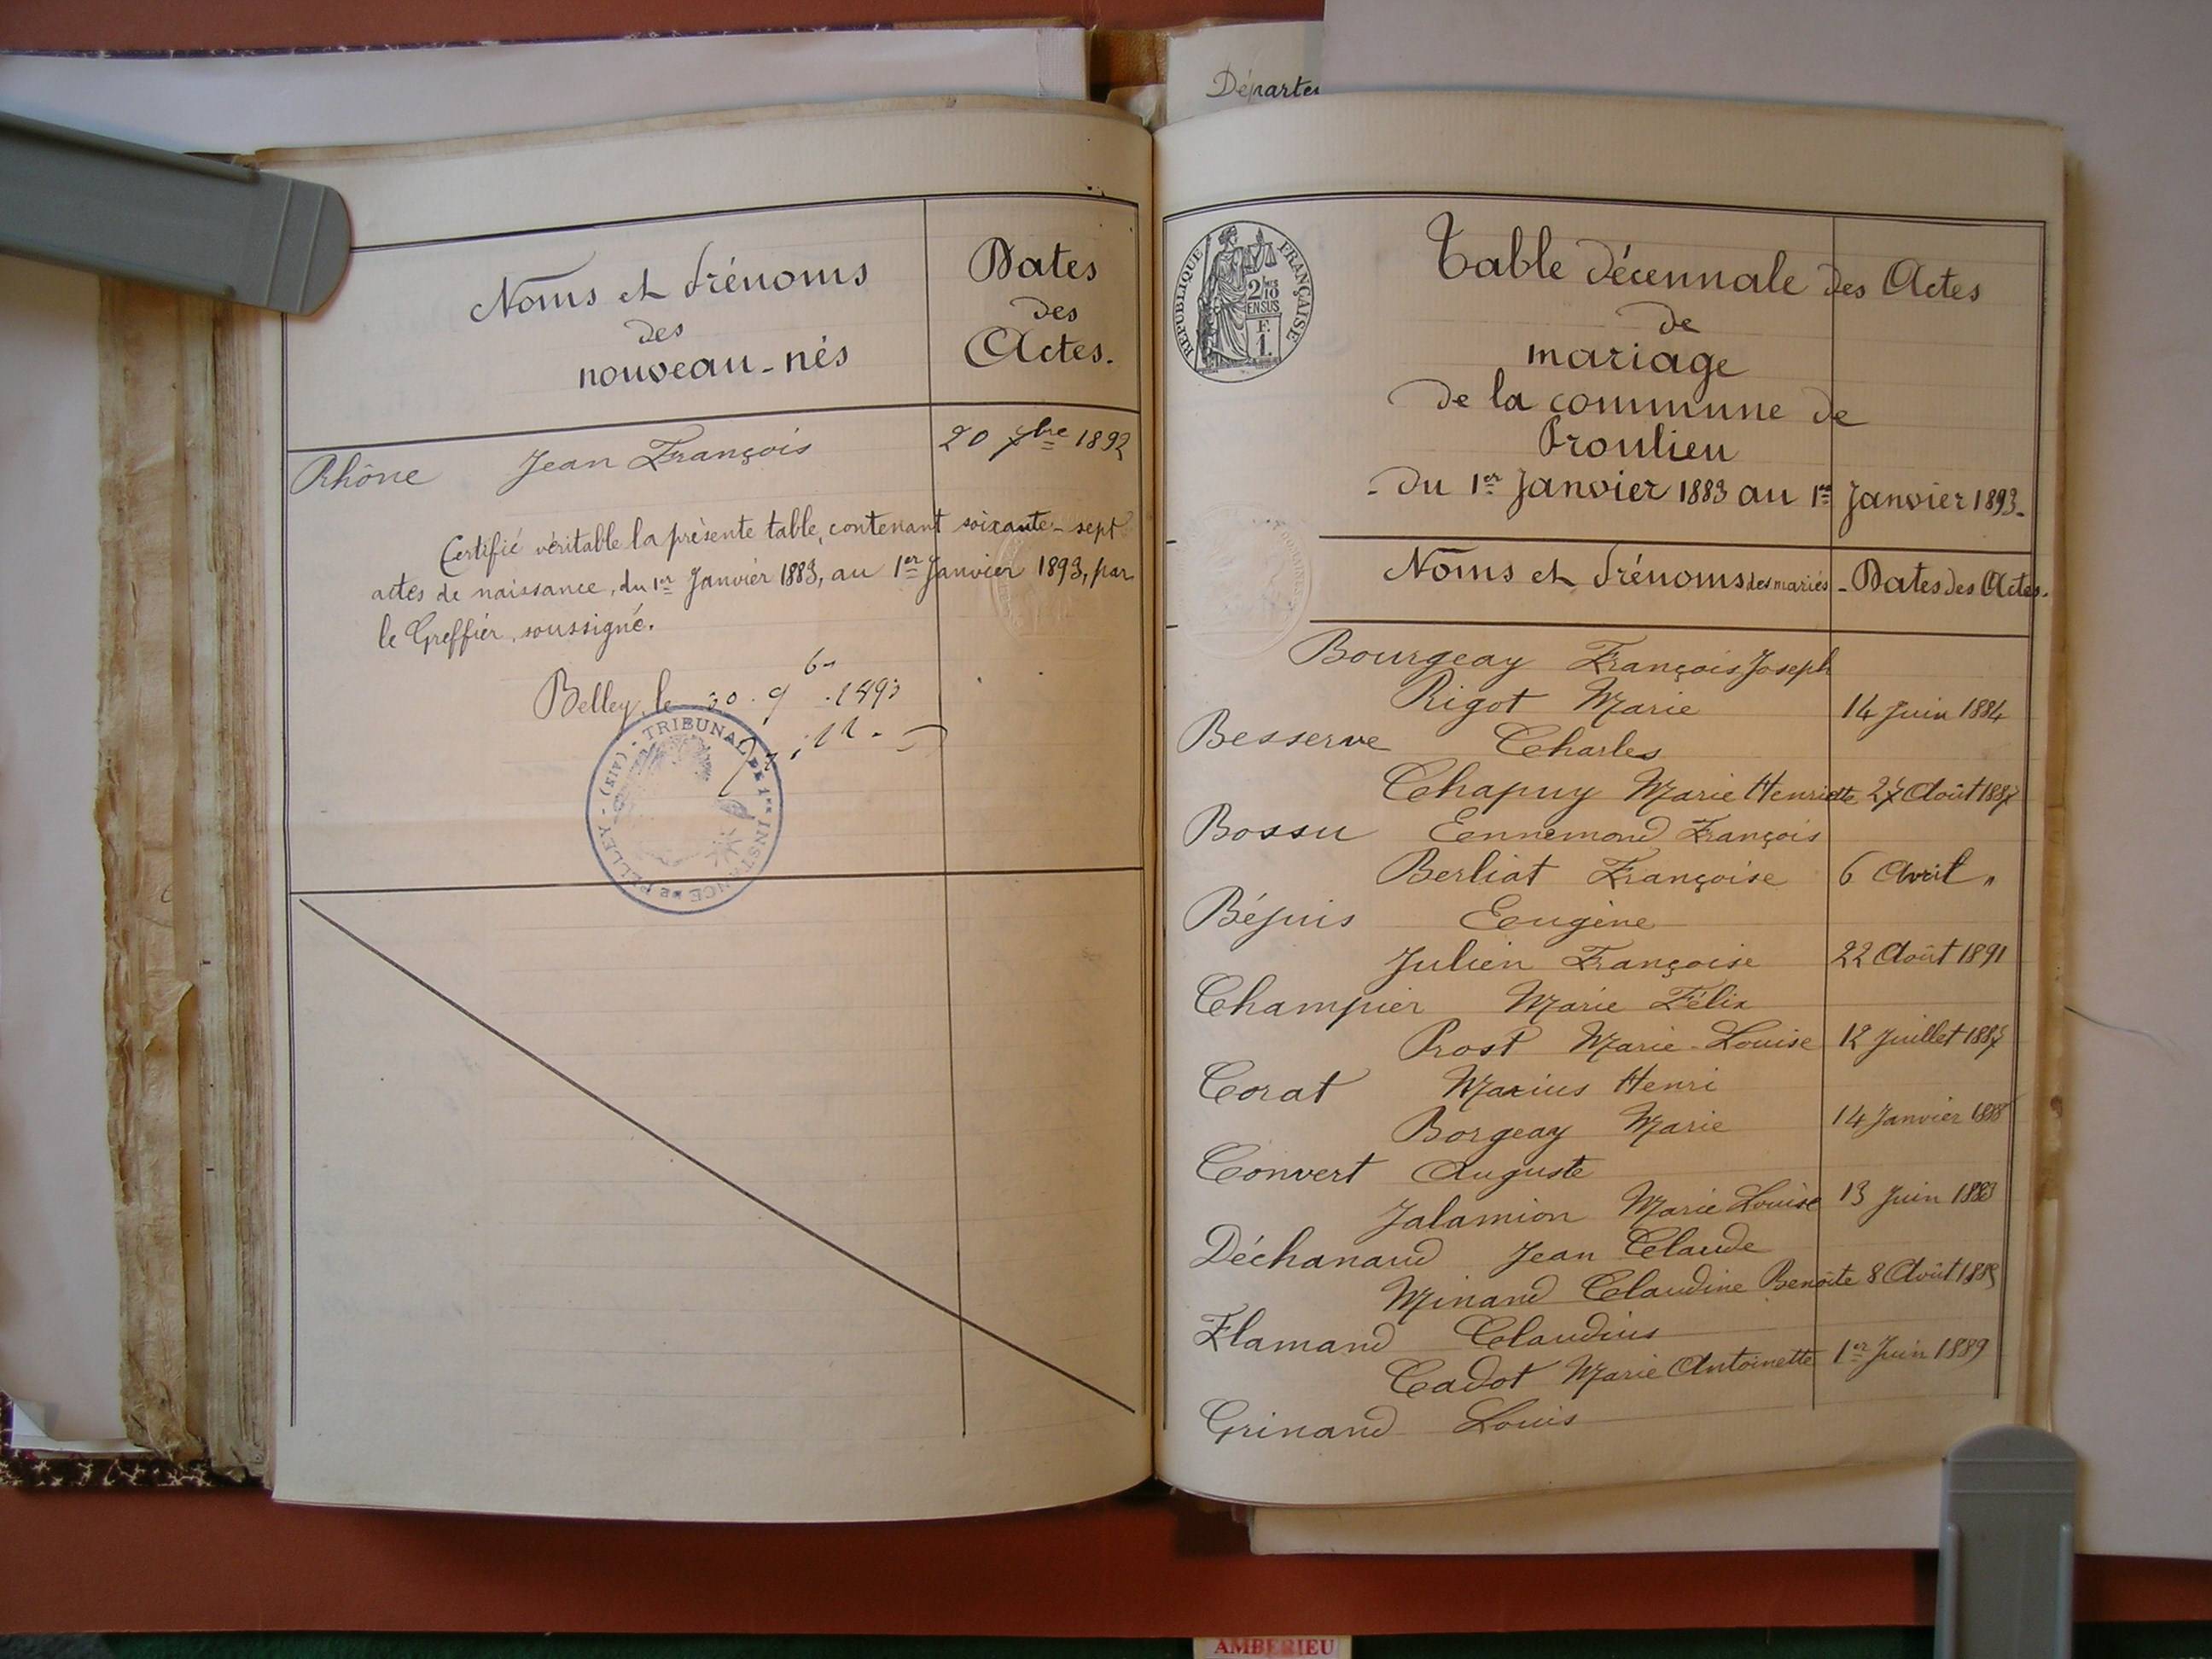 Départe
Noms et Prénoms
des
nouveau-nés
Dates
des
Actes.
Rhône Jean François 20 7bre 1892
Certifié véritable la présente table, contenant soixante-sept
actes de naissance, du 1er Janvier 1883, au 1er Janvier 1893, par
le Greffier, soussigné.
Belley, le 30 9 1893
TRIBUNAL DE 1re INSTANCE DE BELLEY (AIN)
RÉPUBLIQUE FRANÇAISE
2/10
EN SUS
F.
1.
Table décennale des Actes
de
mariage
de la commune de
Proulieu
- du 1er Janvier 1883 au 1er Janvier 1893.
Noms et Prénoms des mariés - Dates des Actes.
Bourgeay François Joseph
Rigot Marie 14 Juin 1884
Besserve Charles
Chapuy Marie Henriette 27 Août 1887
Bossu Eennemond François
Berliat Françoise 6 Avril "
Béjuis Eugène
Julien Françoise 22 Août 1891
Champier Marie Félix
Prost Marie-Louise 12 Juillet 1887
Corat Marius Henri
Borgeay Marie 14 Janvier 1888
Convert Auguste
Jalamion Marie Louise 13 Juin 1883
Déchanaud Jean Claude
Minand Claudine Benoîte 8 Août 1885
Flamand Claudius
Cadot Marie Antoinette 1er Juin 1889
Grinand Louis
AMBERIEU